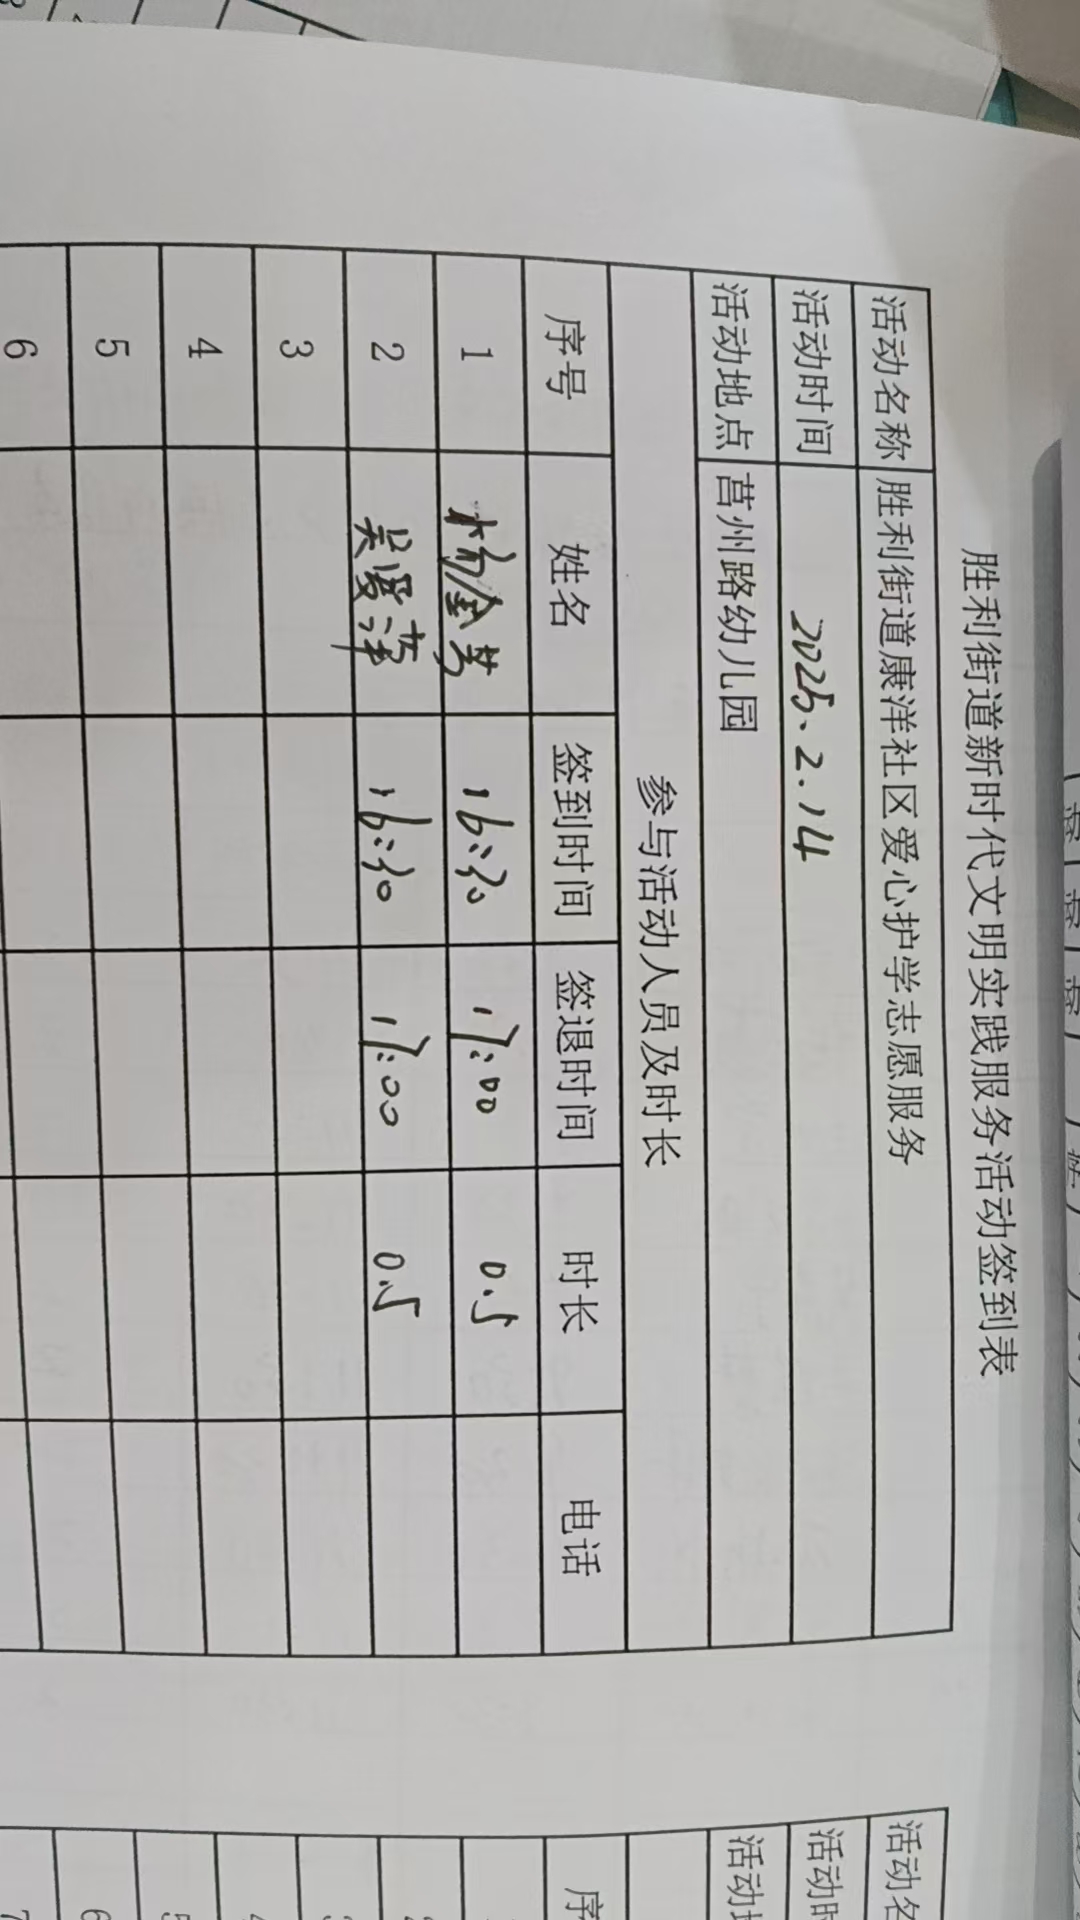 胜利街道新时代文明实践服务活动签到表
活动名称 胜利街道康洋社区爱心护学志愿服务
活动时间 2025.2.14
活动地点 莒州路幼儿园
参与活动人员及时长
序号 姓名 签到时间 签退时间 时长 电话
1 杨金芳 16:30 17:00 0.5
2 吴爱萍 16:30 17:00 0.5
3
4
5
6
活动名
活动时
活动地
序
6
7